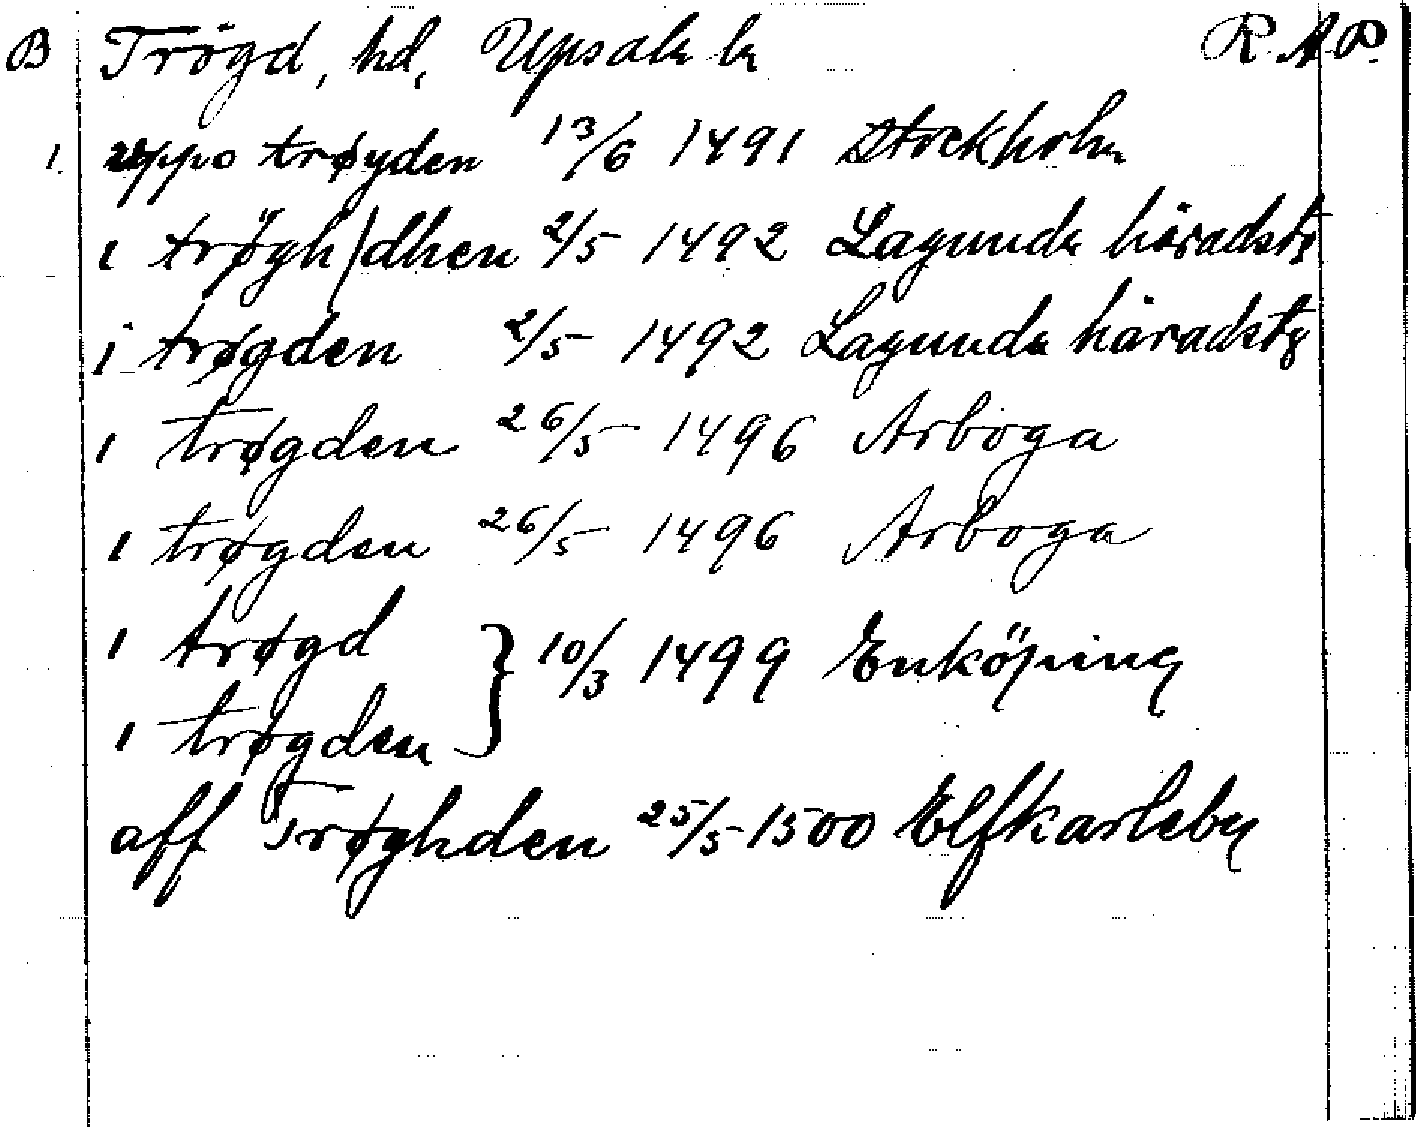 B Trögd, hd, Upsala l. R.A.P.
1. uppo trøyden 13/6 1491 Stockholm
i trögh/dhen 2/5 1492 Lagunda häradstg
i trøgden 2/5 1492 Lagunda häradstg
i trøgden 26/5 1496 Arboga
i trøgden 26/5 1496 Arboga
i trøgd
i trøgden } 10/3 1499 Enköping
aff Trøghden 25/5 1500 Elfkarleby